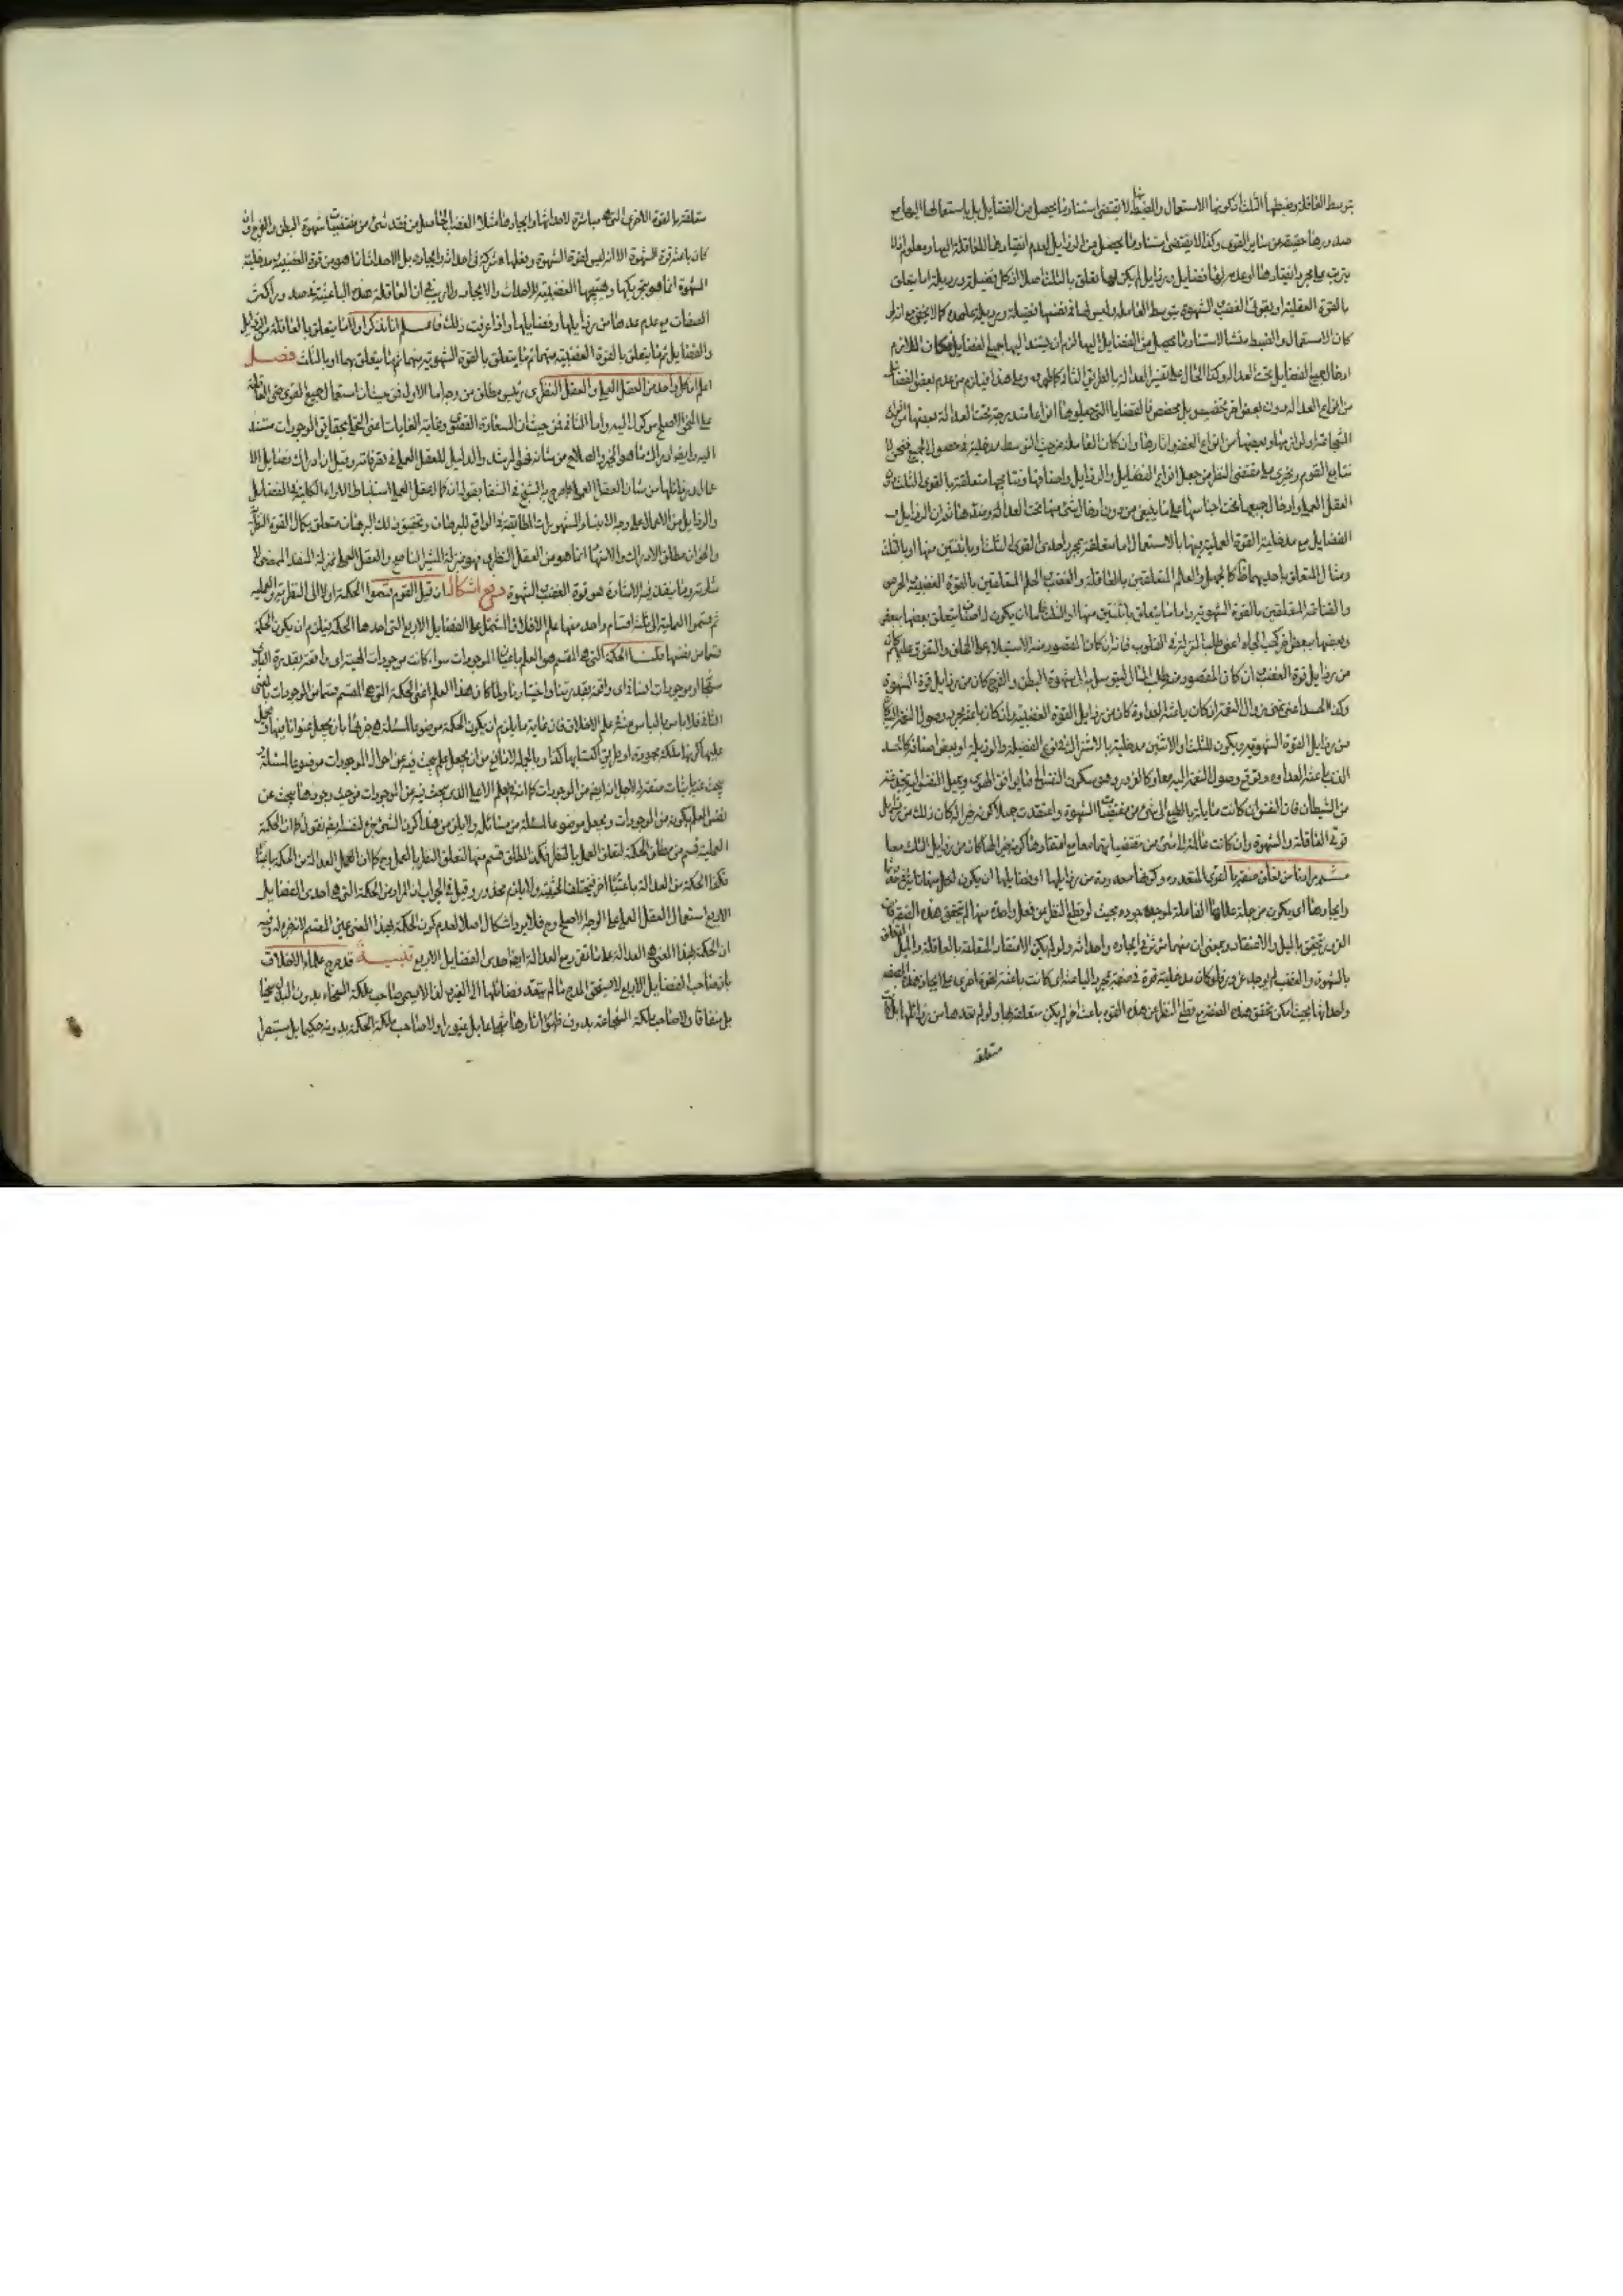 بتوسط العاقلة وضبطها الثلث اذ كونها الاستعمال والضبط لا يقتضى استناد ما يحصل من الفضايل بل باستعمالها اليها مع
صدورها حقيقة من ساير القوى وكذا لا يقتضى استناد ما يحصل من الرذايل لعدم انقيادها للعاقلة اليها ومعلوم ان لا
يترتب على مجرد انقيادها او عدمه لها فضايل ورذايل لم يكن لهما تعلق بالثلث اصلا اذ كل فضيلة ورذيلة اما يتعلق
بالقوة العقلية او بقوتى الغضب والشهوة بتوسط العاقلة وليس لها فى نفسها فضيلة ورذيلة على حدة كما لا يخفى مع انه لو
كان الاستعمال والضبط منشا لاستناد ما يحصل من الفضايل اليها لزم ان يستند اليها جميع الفضايل فكان اللازم
ادخال جميع الفضايل تحت العدالة وكذا الحال على تفسير العدالة بالطريق الثانى كما هو وعلى هذا فيلزم من عدم بعض الفضايل
من انواع العدالة دون بعض اخر تخصيص بلا مخصص فالفضايا التى جعلوها انواعا مندرجة تحت العدالة بعضها من انواع
الشجاعة او لوازمها وبعضها من انواع العفة واثارها وان كان للعاقلة من حيث التوسط مدخلية فى حصول الجميع فنحن لا
نتابع القوم ونجرى على مقتضى النظر من جعل انواع الفضايل والرذايل واصنافها ونتايجها متعلقة بالقوى الثلث دون
العقل العملى وادخال جميعها تحت اجناسها على ما ينبغى من دون ادخال شئ منها تحت العدالة وضدها ثم ان الرذايل و
الفضايل مع مدخلية القوة العملية فيها بالاستعمال اما متعلقة بمجرد احدى القوى الثلث او باثنتين منها او بالثلث
ومثال المتعلق باحديهما ظ كالجهل والعلم المتعلقين بالعاقلة والغضب والحلم المتعلقين بالقوة الغضبية والحرص
والقناعة المتعلقين بالقوة الشهوية واما ما يتعلق باثنتين منها او الثلث فاما ان يكون له اصناف يتعلق بعضها ببعض
وبعضها ببعض اخر كحب الجاه اعنى طلب المنزلة فى القلوب فانه ان كان المقصود منه الاستيلاء على الخلق والتفوق عليهم كان
من رذايل قوة الغضب وان كان المقصود منه طلب المال ليتوسل به الى شهوة البطن والفرج كان من رذايل قوة الشهوة
وكذا الحسد اعنى تمنى زوال النعمة ان كان باعثه العداوة كان من رذايل القوة الغضبية وان كان باعثه مجرد وصول النعمة اليه كان
من رذايل القوة الشهوية او يكون للثلث والاثنين مدخلية بالاشتراك فى نوع الفضيلة والرذيلة او بعض اصنافه كالحسد
الذى باعثه العداوة وتوقع وصول النعمة اليه معا وكالغرور وهو سكون النفس الى ما يوافق الهوى ويميل النفس اليه بخدعة
من الشيطان فان النفس ان كانت مايلة بالطبع الى شئ من مقتضيات الشهوة واعتقدت جهلا كونه خيرا له كان ذلك من رذايل
قوتى العاقلة والشهوة وان كانت مايلة الى شئ من مقتضياتهما معا مع اعتقادها كونه خيرا لها كان من رذايل الثلث معا
ثم مرادنا من تعلق صفة بالقوى المتعددة وكونها معدودة من رذايلها او فضايلها ان يكون لكل منها تاثير فى حدوثها
وايجادها اى يكون من جملة عللها الفاعلة الموجدة لوجودها بحيث لو قطع النظر عن فعل واحدة منها لم يتحقق هذه الصفة فان
الغرور يتحقق بالميل والاعتقاد وبمعنى ان منهما مؤثر فى ايجاده واحداثه ولو لم يكن الاعتقاد المتعلقة بالعاقلة والميل المتعلق
بالشهوة والغضب لم يوجد غرور فلو كان مدخلية قوة فى صفة بمجرد الباعثية اى كانت باعثة لقوة اخرى على ايجاد هذه الصفة
واحداثها بحيث امكن تحقق هذه الصفة مع قطع النظر عن هذه القوة بباعث اخر لم يكن متعلقة بها ولو لم نعدها من رذايلها بل كانت
متعلقة
متعلقة بالقوة الاخرى التى هى مباشرة لاحداثها وايجادها مثلا الغضب الحاصل من فقد شئ من مقتضيات شهوة البطن والفرج وان
كان باعثه قوة الشهوة الا انه ليس لقوة الشهوة وفعلها شركة فى احداثه وايجاده بل الاحداث انما هو من قوة الغضبية ومدخلية
الشهوة انما هو بتحريكها وتهييجها الغضبية للاحداث والايجاد ولا ريب فى ان العاقلة هذه الباعثية فى صدور اكثر
الصفات مع عدم عدها من رذايلها وفضايلها واذا عرفت ذلك فاعلم انا نذكر اولا ما يتعلق بالعاقلة من الرذايل
والفضايل ثم ما يتعلق بالقوة الغضبية منهما ثم ما يتعلق بالقوة الشهوية منهما ثم ما يتعلق بهما او بالثلث فصل
اعلم ان كل واحد من العقل العملى والعقل النظرى رئيس مطلق من وجه اما الاول فمن حيث ان استعمال جميع القوى حتى العاقلة
على النحو الاصلح موكول اليه واما الثانى فمن حيث ان السعادة القصوى وغاية الغايات اعنى التحلى بحقايق الموجودات مستند
اليه وايضا ادراك ما هو الخير والصلاح من شانه فهو المرشد والدليل للعقل العملى فى تصرفاته وقيل ان ادراك فضايل الا
عمال ورذائلها من شان العقل العملى كما صرح به الشيخ فى الشفا بقوله ان كمال العقل العملى استنباط الاراء الكلية فى الفضايل
والرذايل من الاعمال على وجه الابتناء والمشهورات المطابقة فى الواقع للبرهان وتحقيق ذلك البرهان متعلق بكمال القوة النظرية
والحق ان مطلق الادراك والارشاد انما هو من العقل النظرى فهو بمنزلة المشير الناصح والعقل العملى بمنزلة المنفذ الممضى لا
شاراته وما ينفذ فيه الاشارة هو قوة الغضب والشهوة دفع اشكال ان قيل القوم قسموا الحكمة اولا الى النظرية والعملية
ثم قسموا العملية الى ثلثة اقسام واحد منها علم الاخلاق المشتمل على الفضايل الاربع التى احدها الحكمة فيلزم ان يكون الحكمة
قسما من نفسها قلنا الحكمة التى هى المقسم هو العلم باعيان الموجودات سواء كانت موجودات الهية اى واقعة بقدرة البارى
سبحانه او موجودات انسانية اى واقعة بقدرتنا واختيارنا ولما كان هذا العلم اعنى الحكمة التى هى المقسم قسما من الموجودات بالمعنى
الثانى فلا باس بالبحث عنه فى علم الاخلاق فان غاية ما يلزم ان يكون الحكمة موضوعا لمسئلة هى جزئها بان يجعل عنوانا فيها ويحمل
عليها كونها ملكة محمودة او طريق اكتسابها كذا وبالجملة لا مانع من ان يجعل علم يبحث فيه عن احوال الموجودات موضوعا لمسئلة
يبحث عنه باثبات صفة له لاجل انه ايضا من الموجودات كما انه فى العلم الاعلى الذى يبحث فيه عن الموجودات من حيث وجودها يبحث عن
نفس العلم بكونه من الموجودات ويجعل موضوعا لمسئلة من مسائله ولا يلزم من هذا كون الشئ جزء لنفسه ايضا نقول كما ان الحكمة
العملية قسم من مطلق الحكمة لتعلق العمل بالنظر فكذا المطلق قسم منها لتعلق النظر بالعمل وح كما ان العمل العدالة من الحكمة باعتبار
فكذا الحكمة من العدالة باعتبار اخر فيختلف الحيثية ولا يلزم محذور وقيل فى الجواب ان المراد من الحكمة التى هى احدى الفضايل
الاربع استعمال العقل العملى على الوجه الاصلح وح فلا يرد اشكال اصلا لعدم كون الحكمة بهذا المعنى عين المقسم لانه جزء له وفيه
ان الحكمة بهذا المعنى هى العدالة على ما تقرر مع العدالة ايضا احدى الفضايل الاربع تنبيه قد صرح علماء الاخلاق
بان صاحب الفضايل الاربع لا يستحق المدح ما لم يتعد فضائلها الى الغير ولذا لا يسمى صاحب ملكة السخاء بدون البذل سخيا
بل منفاقا ولا صاحب ملكة الشجاعة بدون ظهور اثارها شجاعا بل غيورا ولا صاحب ملكة الحكمة بدونه حكيما بل مستبصرا